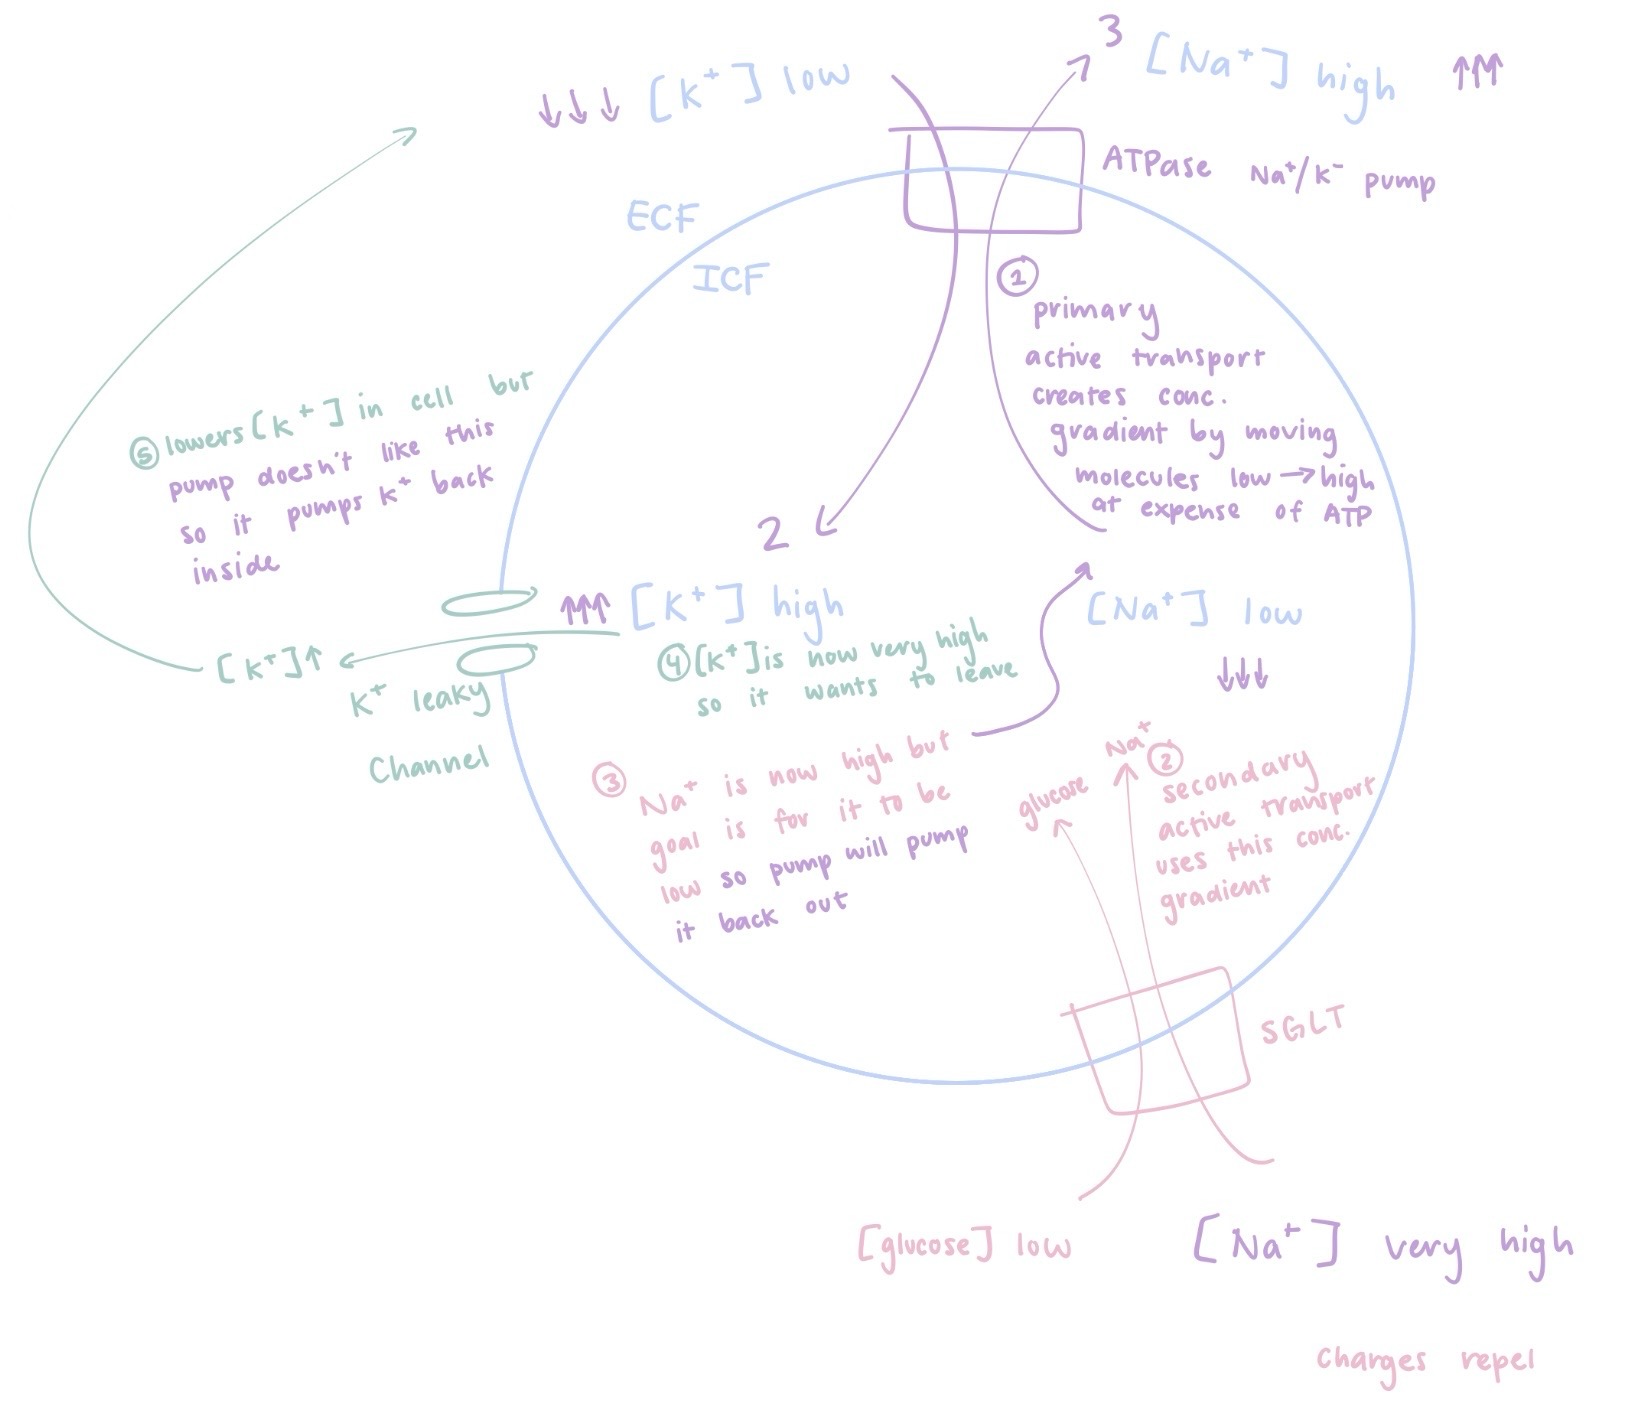 3
[Na⁺] high ↑↑↑
↓↓↓ [K⁺] low
ATPase Na⁺/K⁻ pump
ECF
ICF
①
primary
active transport
creates conc.
gradient by moving
molecules low → high
at expense of ATP
2
⑤ lowers [K⁺] in cell but
pump doesn't like this
so it pumps K⁺ back
inside
↑↑↑ [K⁺] high
[Na⁺] low
↓↓↓
④ [K⁺] is now very high
so it wants to leave
[K⁺]↑
K⁺ leaky
Channel
③ Na⁺ is now high but
goal is for it to be
low so pump will pump
it back out
glucose
Na⁺
②
secondary
active transport
uses this conc.
gradient
SGLT
[glucose] low
[Na⁺] very high
Charges repel